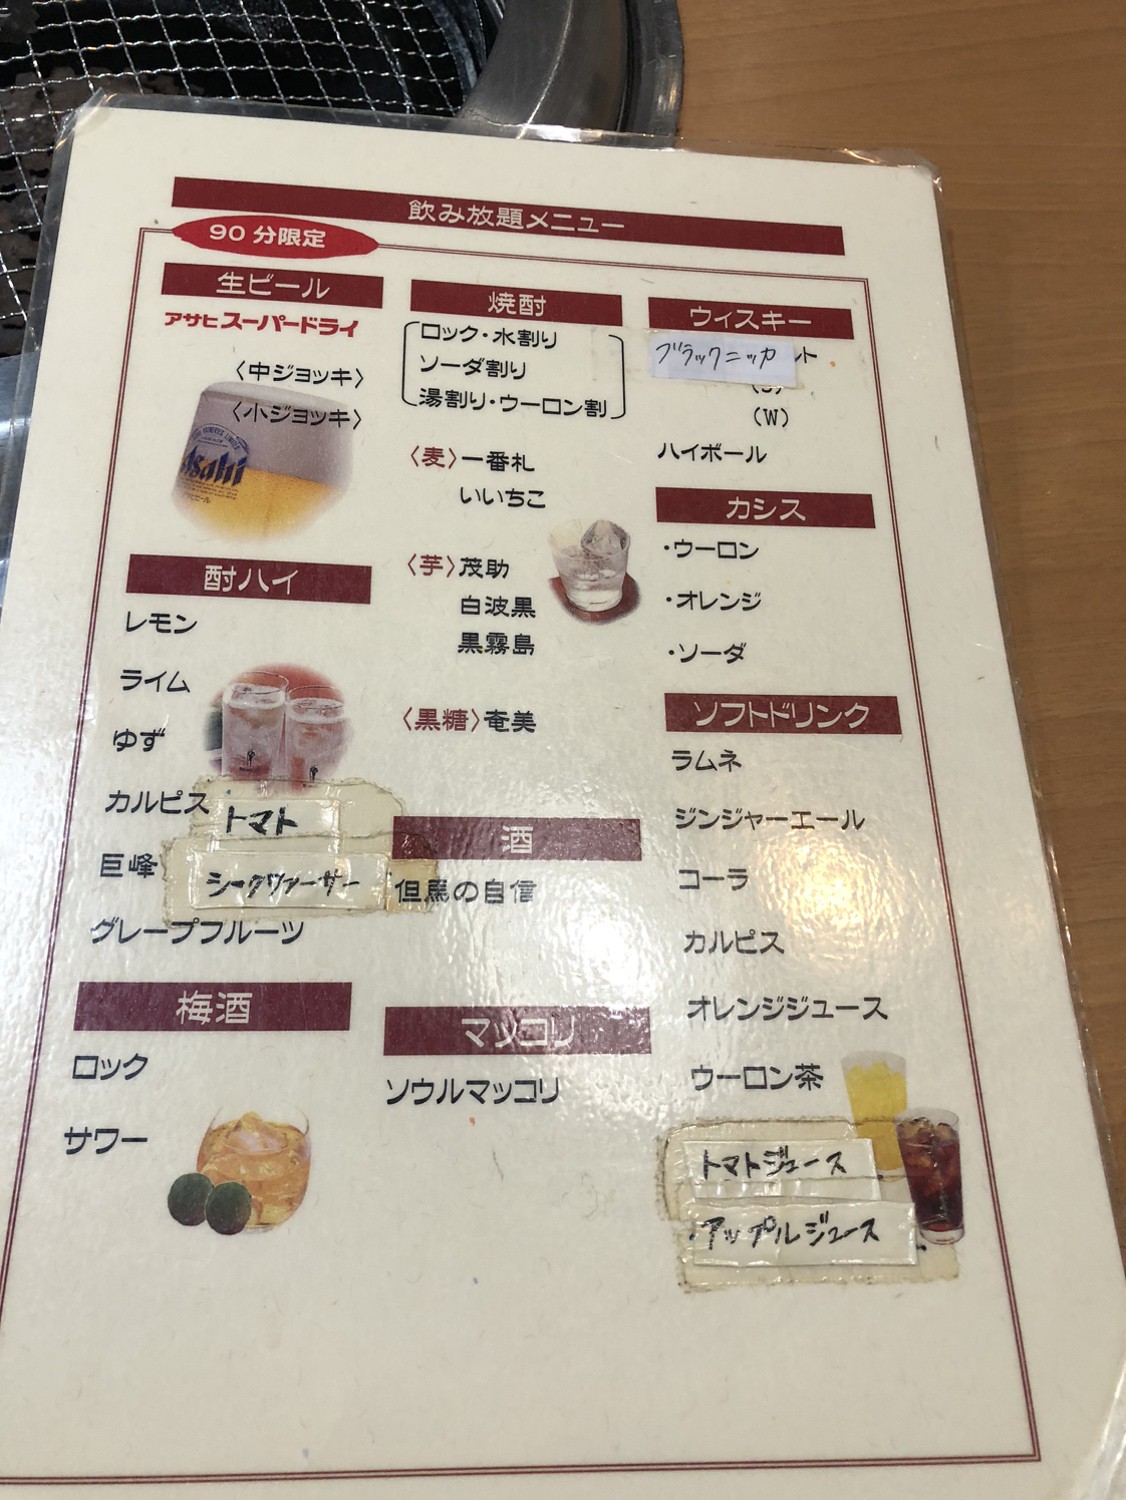 飲み放題メニュー
90分限定
生ビール
アサヒスーパードライ
〈中ジョッキ〉
〈小ジョッキ〉
Asahi
酎ハイ
レモン
ライム
ゆず
カルピス
トマト
巨峰
シークヮーサー
グレープフルーツ
梅酒
ロック
サワー
焼酎
ロック・水割り
ソーダ割り
湯割り・ウーロン割
〈麦〉一番札
いいちこ
〈芋〉茂助
白波黒
黒霧島
〈黒糖〉奄美
酒
但馬の自信
マッコリ
ソウルマッコリ
ウィスキー
ブラックニッカ
ット
(W)
ハイボール
カシス
・ウーロン
・オレンジ
・ソーダ
ソフトドリンク
ラムネ
ジンジャーエール
コーラ
カルピス
オレンジジュース
ウーロン茶
トマトジュース
・アップルジュース